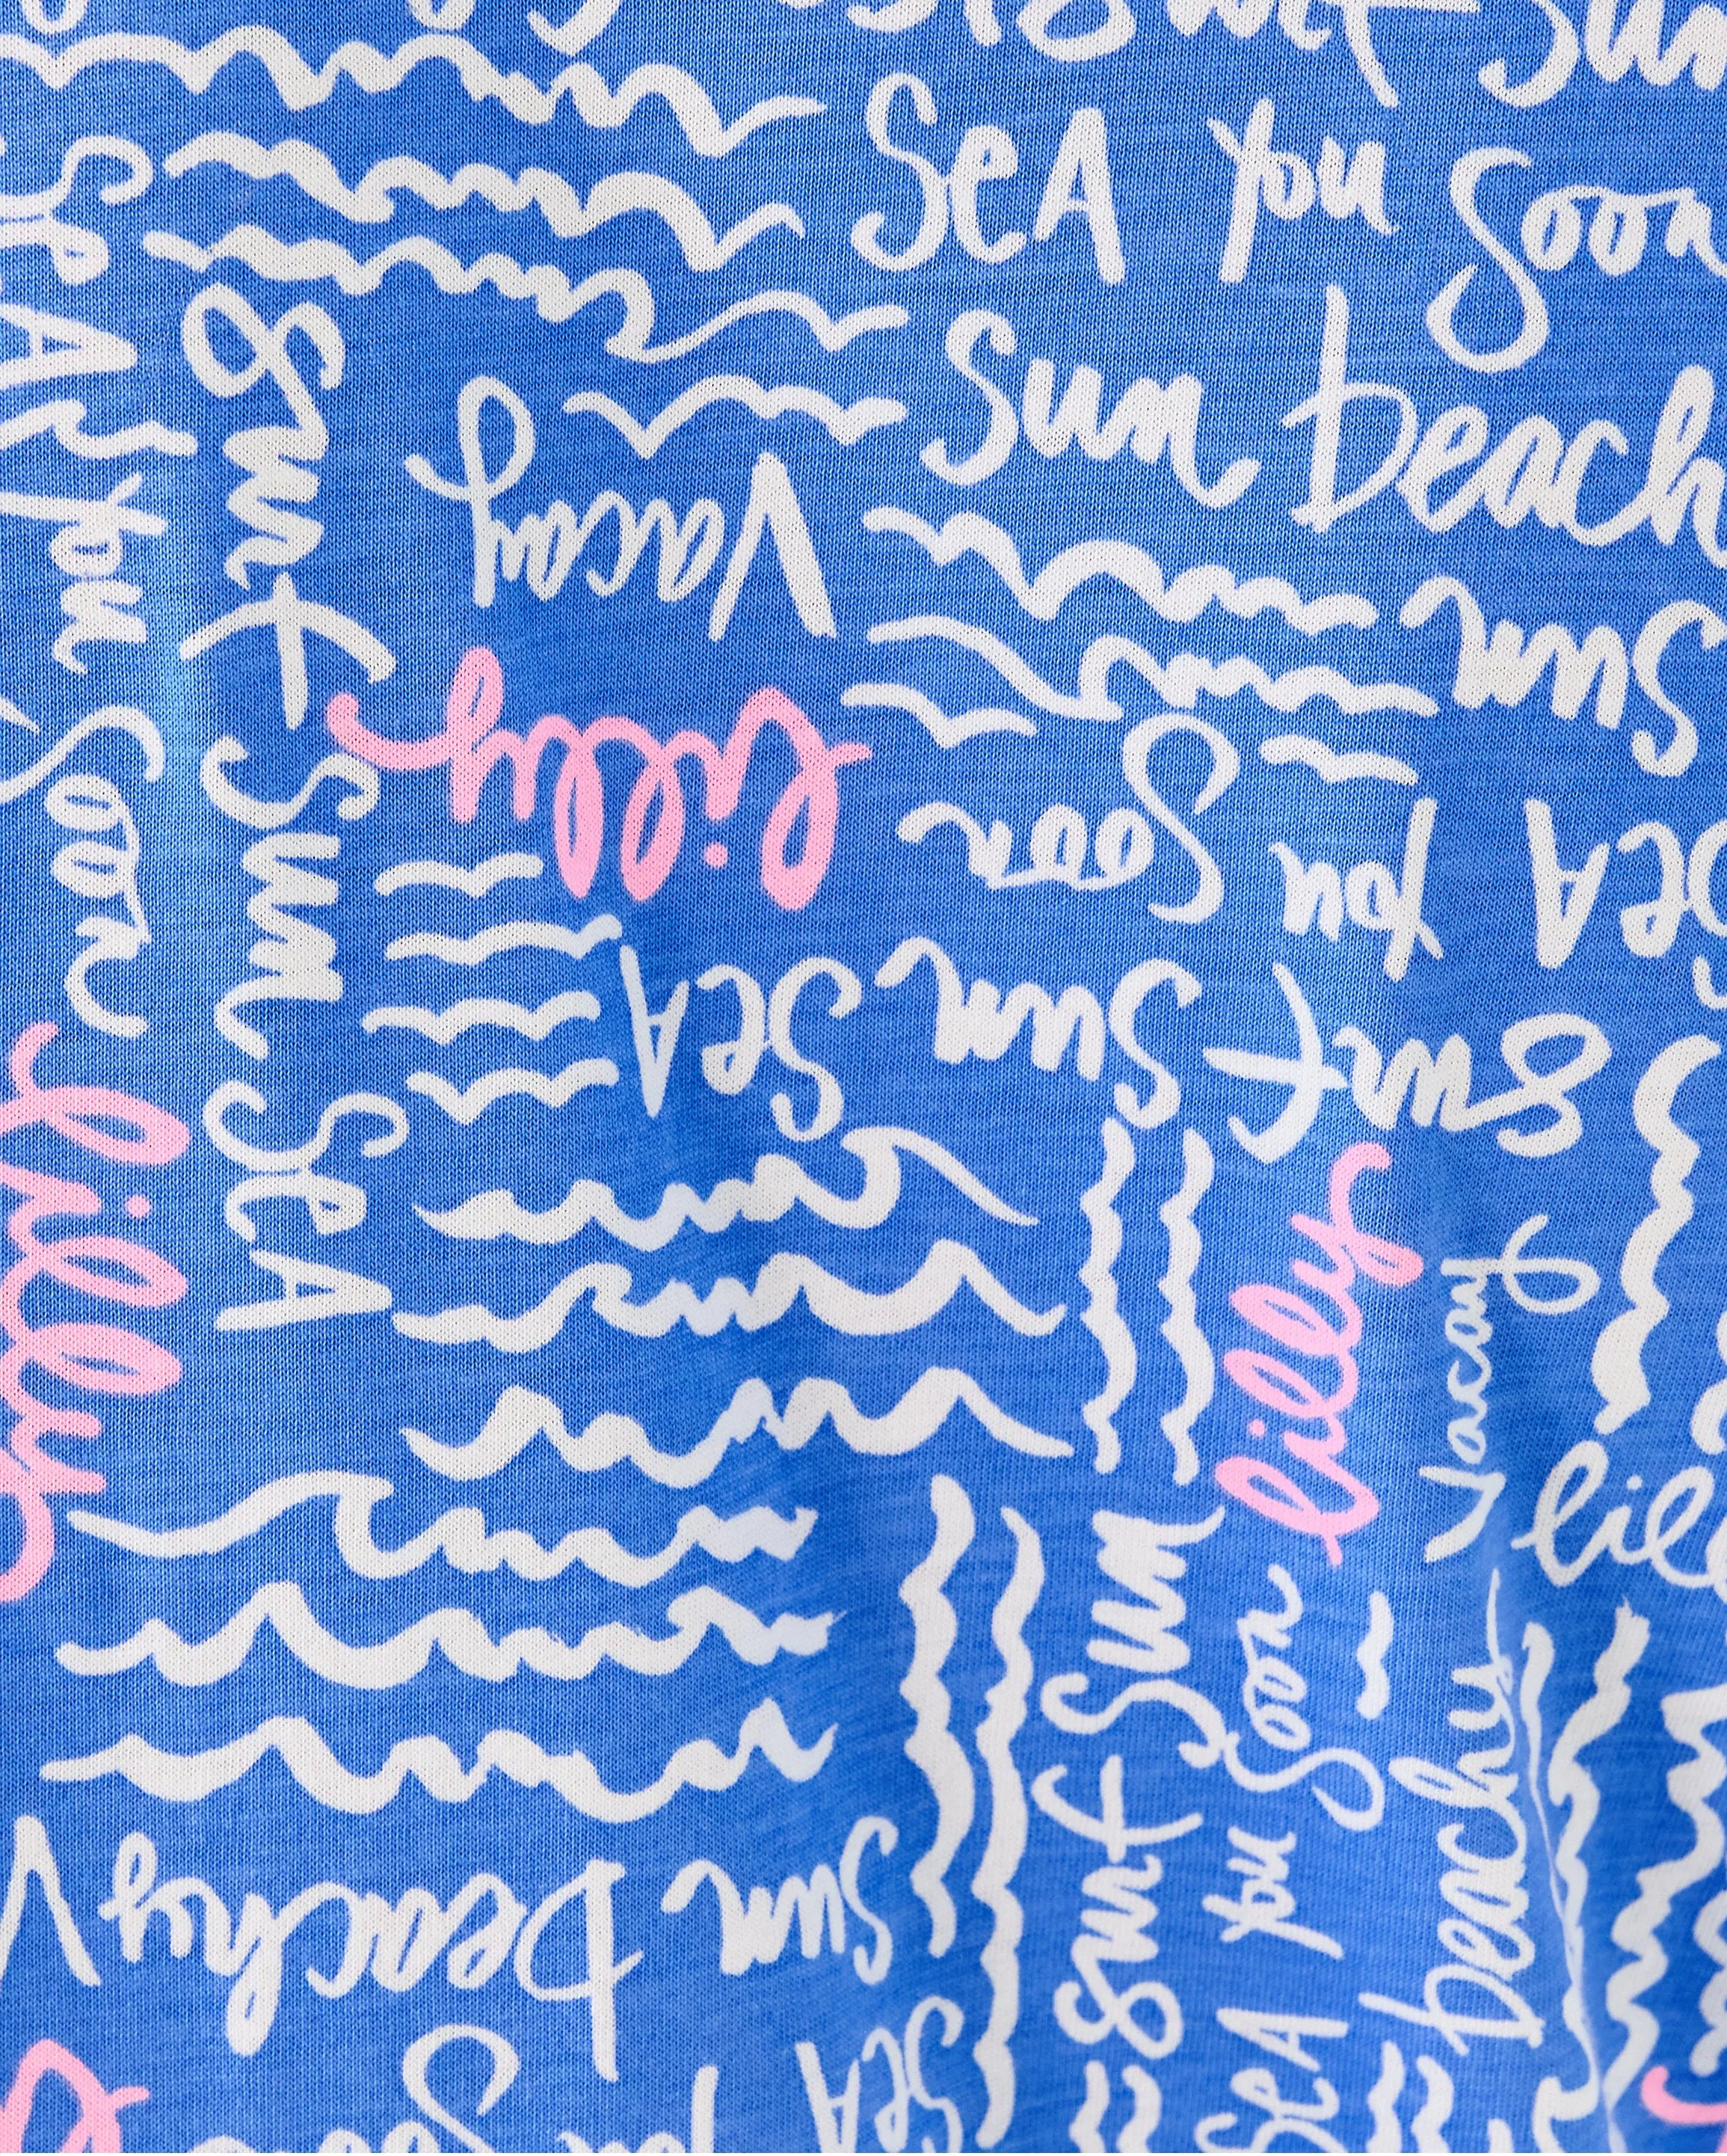 Sun
SeA you Soon
Sun beach
SeA you Soon
Surf Sun SeA
Vacay
lilly
Sun
SeA you Soon
SeA Sun Surf
lilly
lilly
Vacay
lil
Surf Sun
SeA you Soon
beachy
Sun beachy
SeA